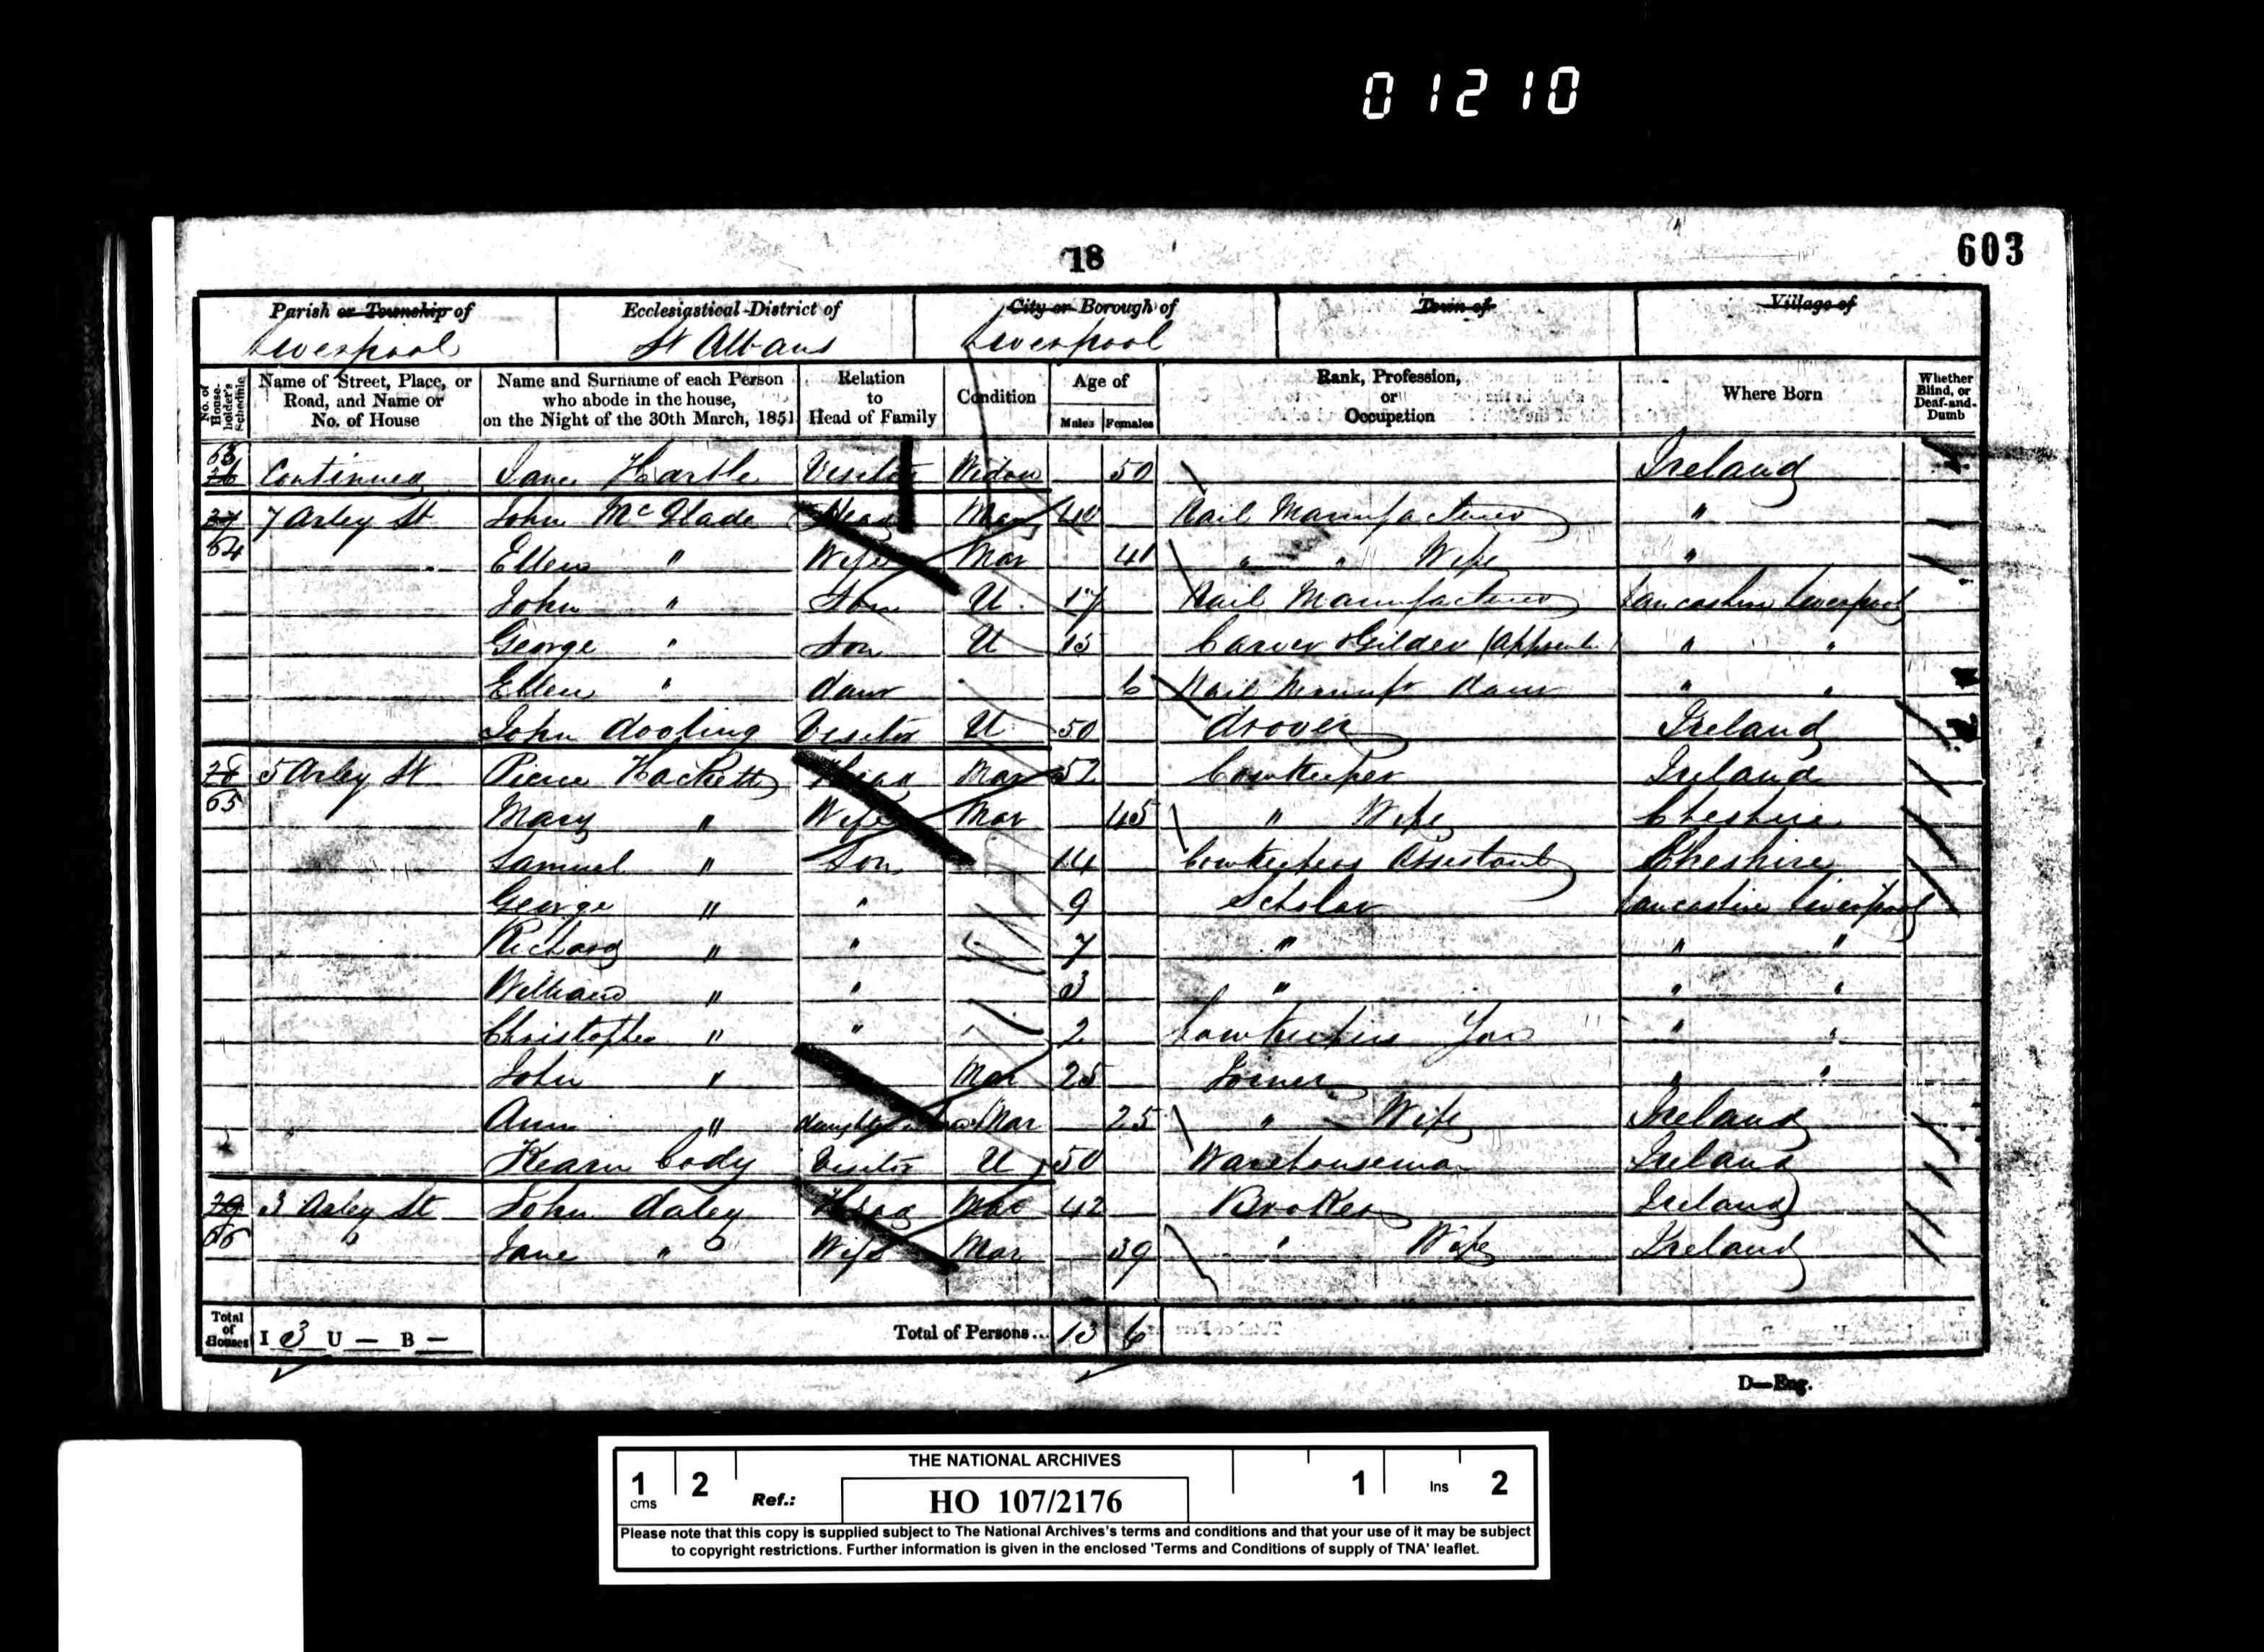 01210
18
603
Parish or Township of
Liverpool
Ecclesiastical District of
St Albans
City or Borough of
Liverpool
Town of
Village of
No. of House-holder's Schedule
Name of Street, Place, or Road, and Name or No. of House
Name and Surname of each Person who abode in the house, on the Night of the 30th March, 1851
Relation to Head of Family
Condition
Age of
Males Females
Rank, Profession, or Occupation
Where Born
Whether Blind, or Deaf-and-Dumb
63 26 Continued Jane Hartle Visitor Widow 50 Ireland
27 7 Arley St John McGlade Head Mar 40 Nail Manufacturer "
64 Ellen " Wife Mar 41 " " Wife "
John " Son U 17 Nail Manufacturer Lancashire Liverpool
George " Son U 15 Carver Gilder " "
Ellen " daur 6 Nail Manufr daur " "
John dooling Visitor U 50 drover Ireland
28 5 Arley St Pierce Hackett Head Mar 52 Cowkeeper Ireland
65 Mary " Wife Mar 45 " Wife Cheshire
Samuel " Son 14 Cowkeepers Assistant Cheshire
George " " 9 Scholar Lancashire Liverpool
Richard " " 7 " " "
William " " 3 " " "
Christopher " " 2 Cowkeepers Son " "
John " Mar 25 Joiner " "
Ann " daughter in law Mar 25 " Wife Ireland
Kearn Cody Visitor U 50 Warehouseman Ireland
29 3 Arley St John daley Head Mar 42 Broker Ireland
66 " Jane " Wife Mar 39 " Wife Ireland
Total of Houses I 3 U — B — Total of Persons... 13 6
D—Eng.
THE NATIONAL ARCHIVES
1 cms 2 Ref.: HO 107/2176 1 Ins 2
Please note that this copy is supplied subject to The National Archives's terms and conditions and that your use of it may be subject
to copyright restrictions. Further information is given in the enclosed 'Terms and Conditions of supply of TNA' leaflet.